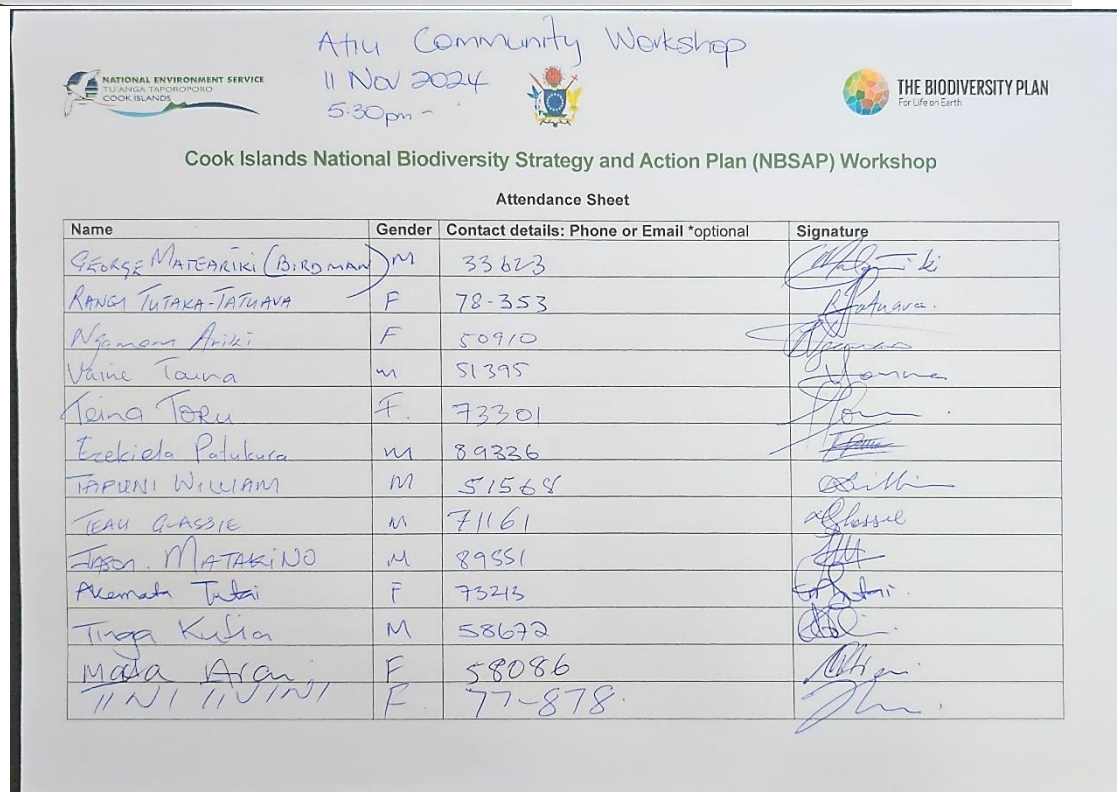 Atiu Community Workshop
11 Nov 2024
5:30pm -
NATIONAL ENVIRONMENT SERVICE
TU'ANGA TAPOROPORO
COOK ISLANDS
THE BIODIVERSITY PLAN
For Life on Earth
Cook Islands National Biodiversity Strategy and Action Plan (NBSAP) Workshop
Attendance Sheet
Name Gender Contact details: Phone or Email *optional Signature
GEORGE MATEARIKI (BIRDMAN) M 33623
RANGI TUTAKA-TATUAVA F 78-353
Ariki F 50910
Vaine Tauna m 51395
Teina TORU F. 73301
Ezekiela Patukura m 89336
TAPUNI WILLIAM M 51568
TEAU GLASSIE M 71161
JASON. MATAKINO M 89551
Akemata Tutai F 73213
Tinga M 58672
F 58086
TINI IIVINI F. 77-878.